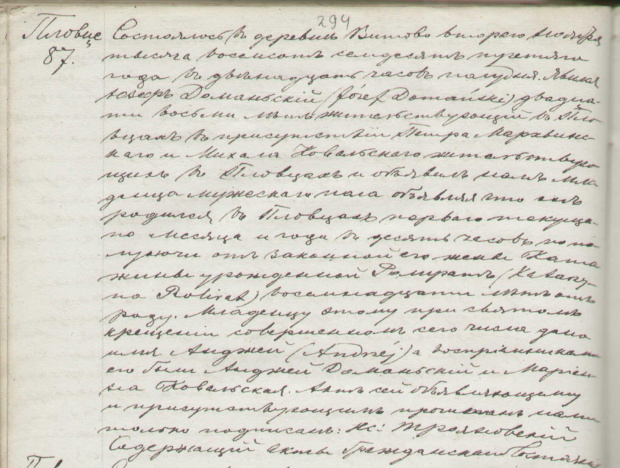 294
Пловце
87.
Состоялось въ деревнѣ Витово втораго
тысяча восемсотъ семдесятъ третяго
года въ двѣнадцать часовъ полудня. Явился
Іосефъ Доманьскій (Józef Domański) двадца-
ти восьми лѣтъ жительствующій въ Пло-
вцахъ въ присутствіи Петра
и Михала Ковальскаго жительствую-
щихъ въ Пловцахъ и объявилъ намъ мла-
денца мужескаго пола объявляя что онъ
родился въ Пловцахъ перваго текуща-
го мѣсяца и года въ десять часовъ по по-
отъ законной его жены Ката-
жины урожденной (Katarzy-
на восемнадцати лѣтъ отъ
роду. Младенцу этому при святомъ
крещеніи совершенномъ сего числа дано
имя Анджей (Andrzéj) а воспріемниками
его были Анджей Доманьскій и Маріан-
на Ковальская. Актъ сей объявляющему
и присутствующимъ прочитанъ нами
только подписанъ: Кс:
Содержащій акты Гражданскаго Состоянія